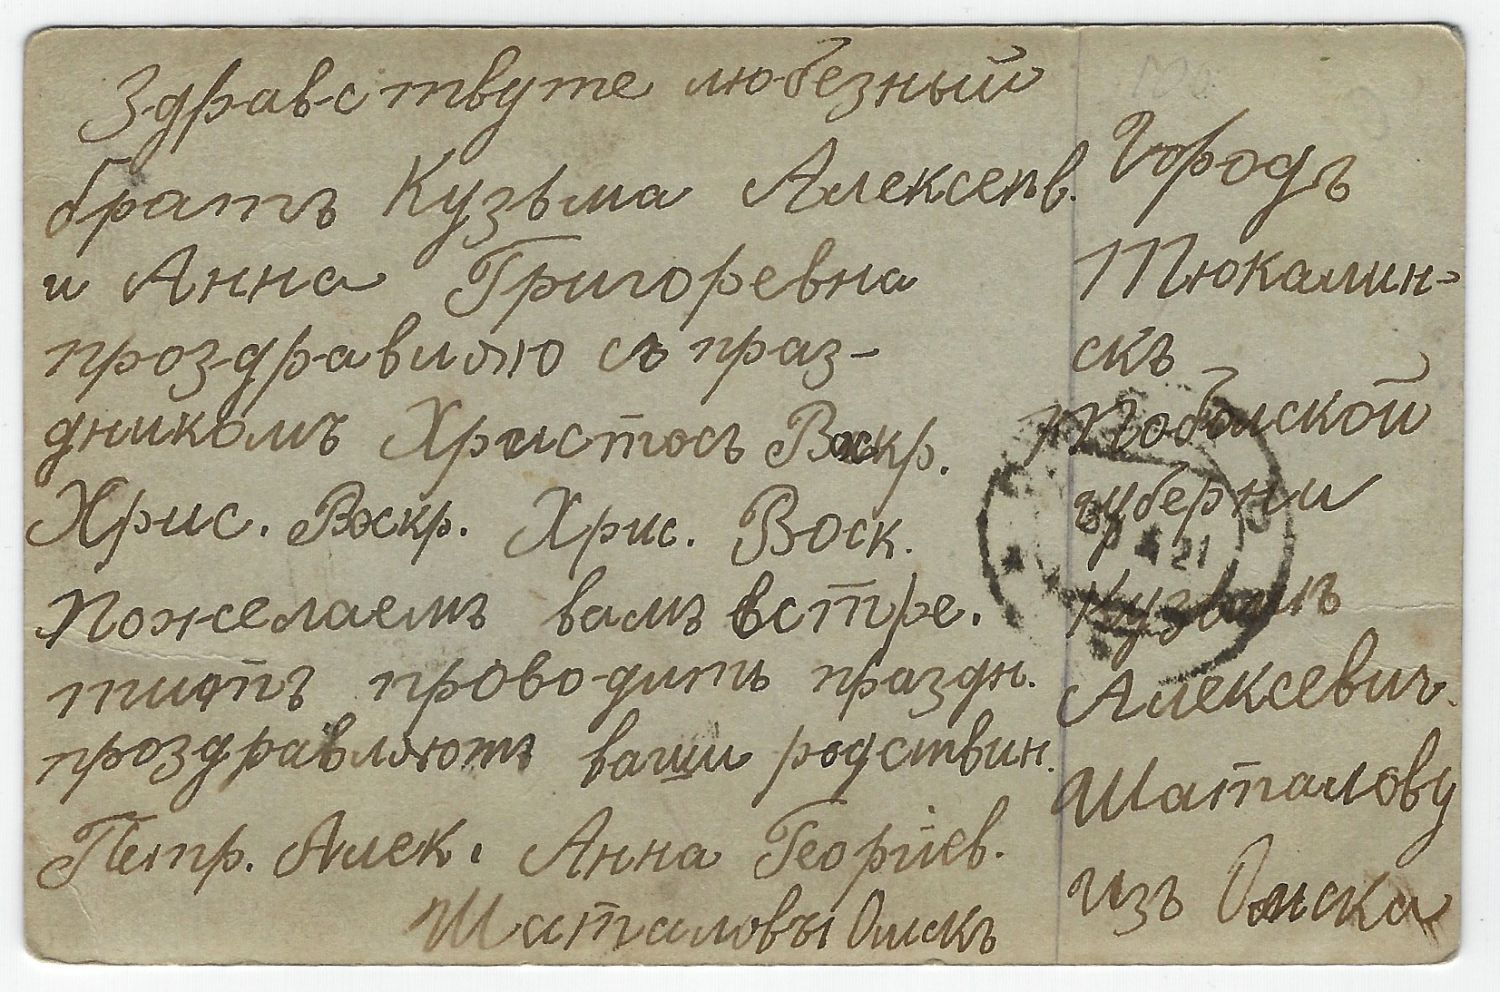 Здравствуте любезный
братъ Кузьма Алексеев.
и Анна Григоревна
проздравляю съ праз-
дникомъ Христосъ Воскр.
Хрис. Воскр. Хрис. Воск.
Пожелаемъ вамъ встре.
тить проводить праздн.
проздравляютъ ваши родствин.
Петр. Алек. Анна Георгіев.
Шаталовы Омскъ
Городъ
Тюкалин-
скъ
Тобольской
губерни
21
Кузьмъ
Алексевич.
Шаталову
изъ Омска